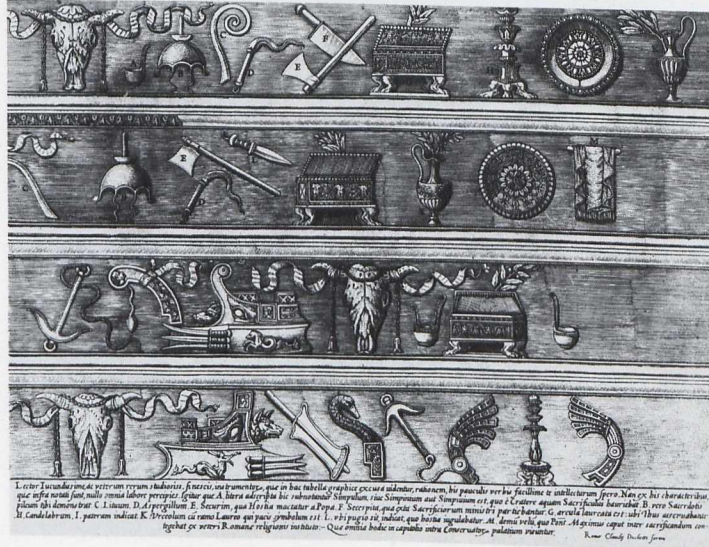 E
F
E
M
Lector Iucundissime, ac veterum rerum studiosis, si nescis, instrumentor, quæ in hac tabella graphice excusa uidentur, rationem, his pauculis verbis facillime te intellecturum spero. Nan ex his characteribus,
quæ infra notati sunt, nullo omnia labore percipies. Igitur que A. litera adscripta hic subnotantur Simpulum, siue Simpuuium aut Simpicium est, quo è Cratere aquam Sacrificulus hauriebat. B. vero Sacerdotis
pileum tibi demonstrat. C. Lituum. D. Aspergillum. E. Securim, qua Hostia mactatur a Popa. F. Secespita, qua exta Sacrificiorum ministri partiebantur. G. arcula laureata est: ubi Thus aseruabatur
H. Candelabrum. I. pateram indicat. K. Vrceolum cū ramo Lauro qui pacis symbolum est. L. ubi pugio sit, indicat, quo hostia iugulabatur. M. demū velū, quo Pont. Maximus caput inter sacrificandum con:
tegebat ex veteri Romanæ religionis instituto. Quæ omnia hodie in capitolio intra Conseruatorū palatium visuntur.
Romæ Claudij Ducheti formis